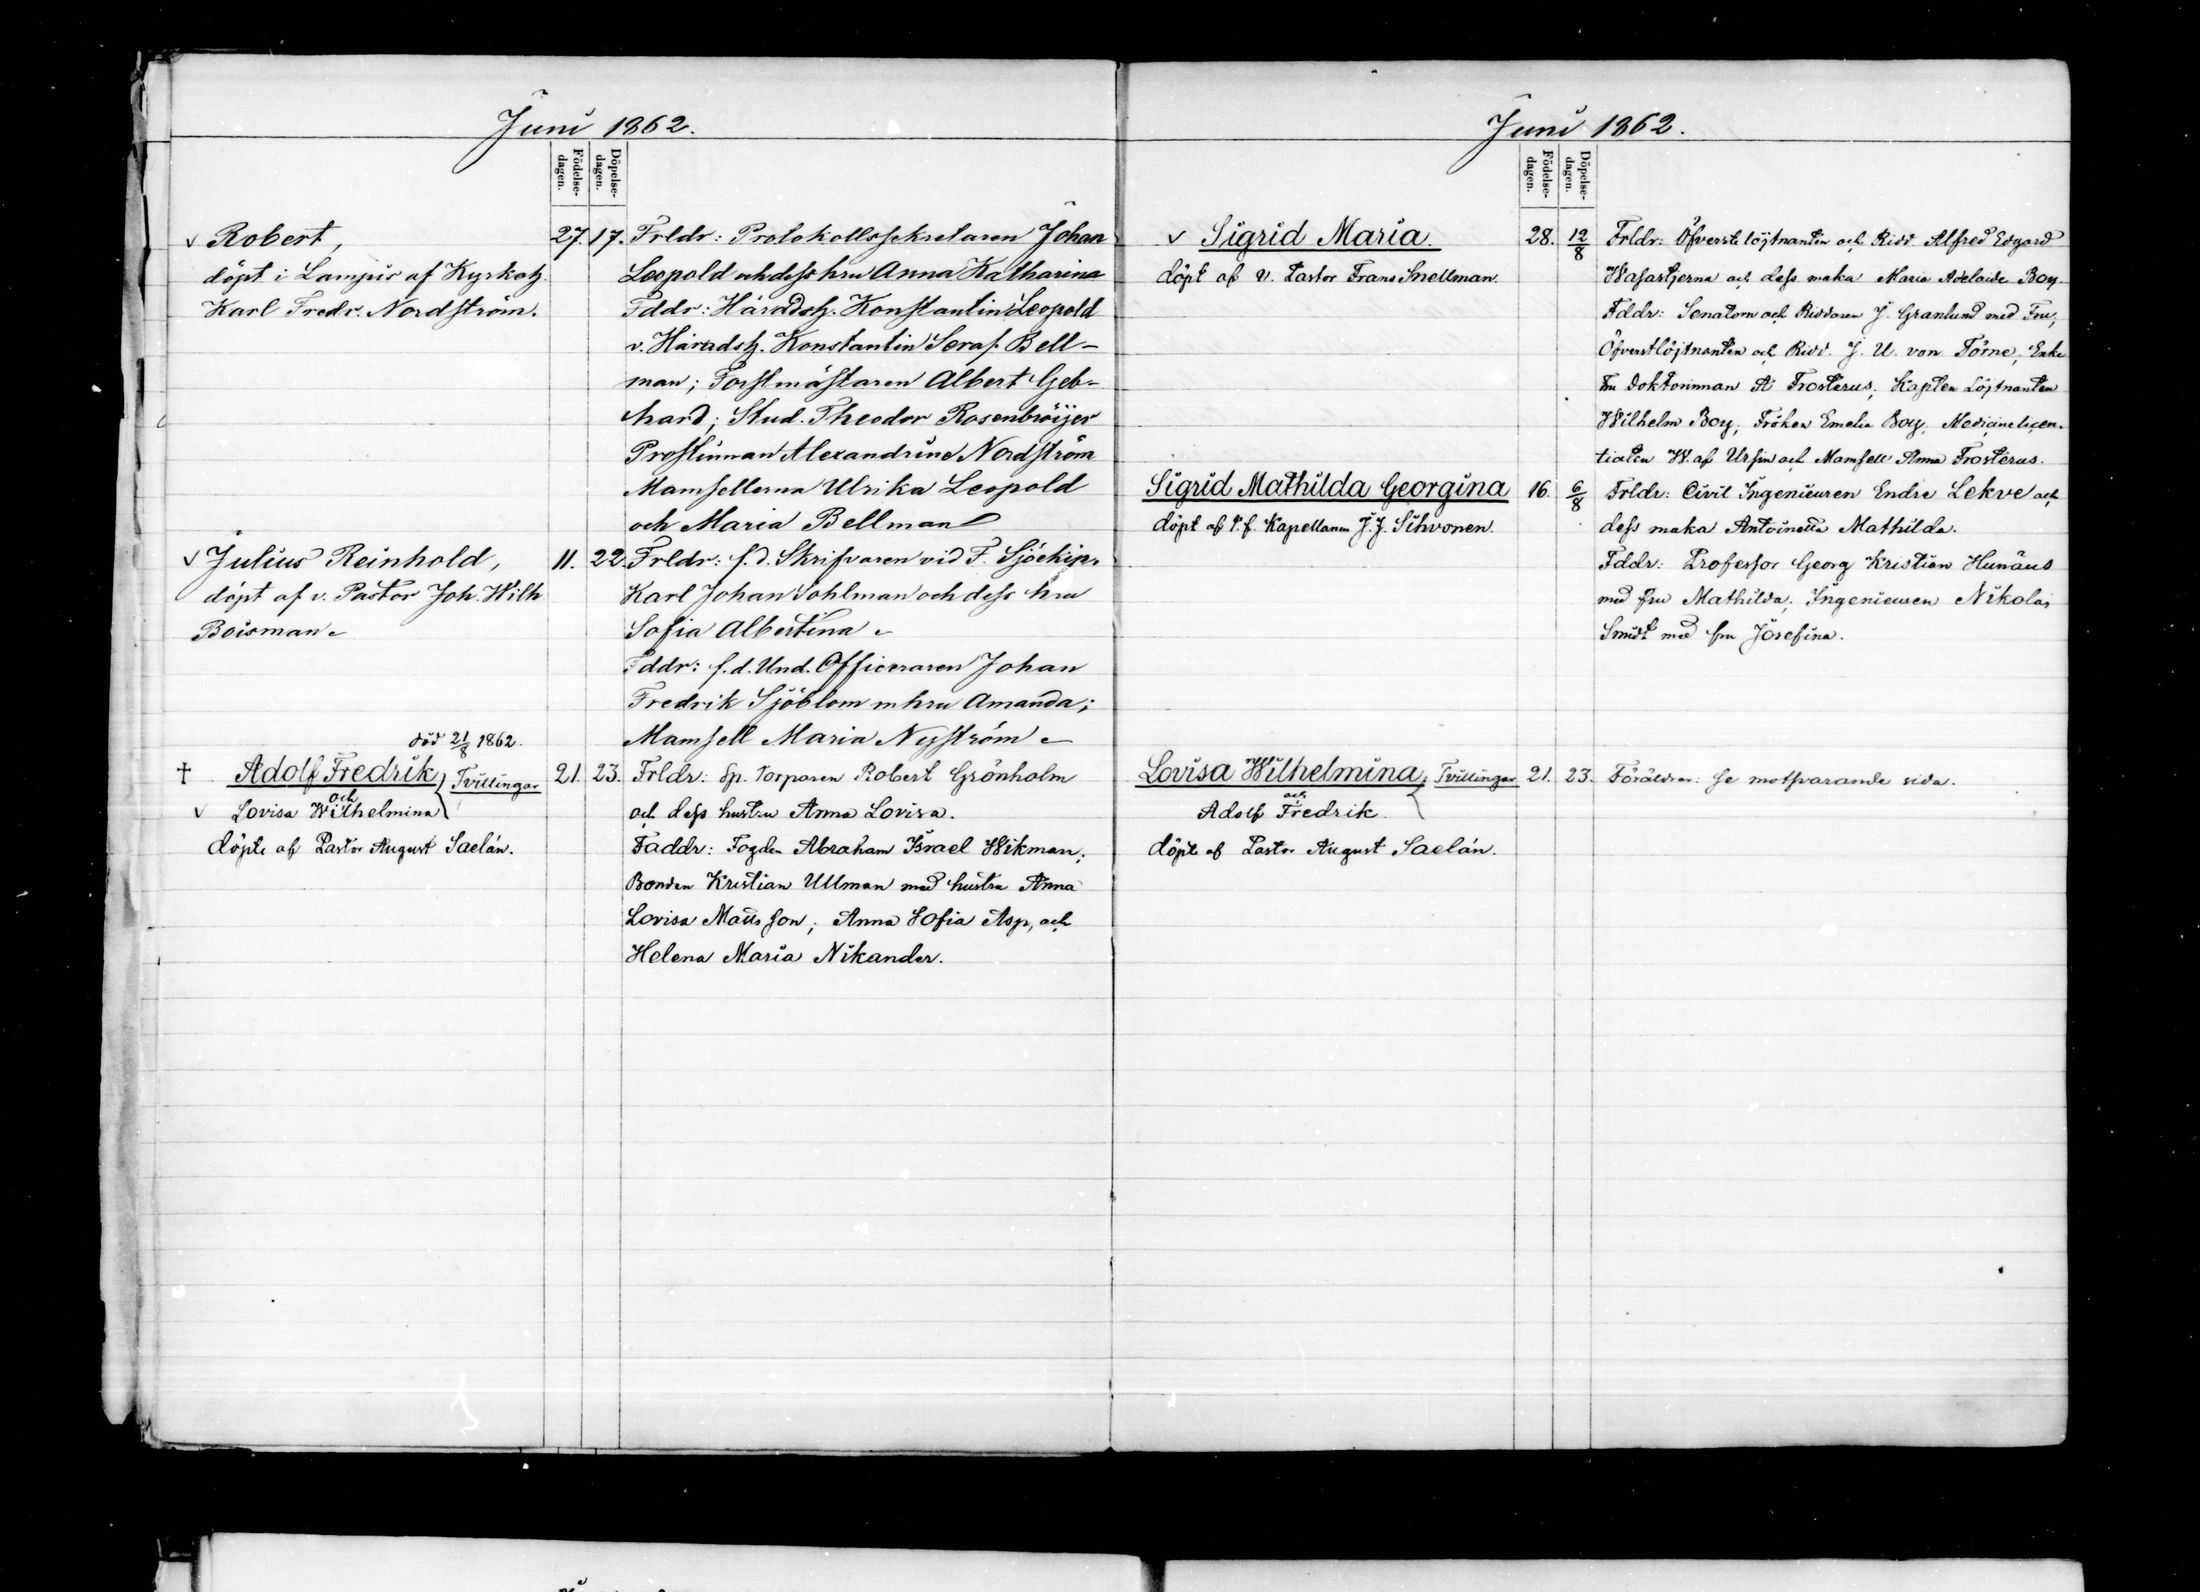 Juni 1862.
Födelse-
dagen.
Döpelse-
dagen.
v Robert,
döpt i Lampis af Kyrkoh.
Karl Fredr. Nordström.
27. 17. Frldr: Protokollssekretaren Johan
Leopold och dess hru Anna Katharina
Fddr: Häradsh. Konstantin Leopold
v. Häradsh. Konstantin Seraf. Bell-
man; Forstmästaren Albert Geb-
hard; Stud. Theodor Rosenbröijer
Prostinnan Alexandrine Nordström
Mamsellerna Ulrika Leopold
och Maria Bellman
v Julius Reinhold,
döpt af v. Pastor Joh. Wilh
Boisman
11. 22. Frldr: f.d. Skrifvaren vid F. Sjöekip.
Karl Johan Sohlman och dess hru
Sofia Albertina
Fddr: f.d. Und. Officeraren Johan
Fredrik Sjöblom m hru Amanda;
Mamsell Maria Nyström
död 21/8 1862.
† Adolf Fredrik } Tvillingar
och
v Lovisa Wilhelmina
döpte af Pastor August Saelán.
21. 23. Frldr: Sp. Torparen Robert Grönholm
och dess hustru Anna Lovisa.
Faddr: Fogden Abraham Israel Wikman;
Bonden Kristian Ullman med hustru Anna
Lovisa Matsson; Anna Sofia Asp, och
Helena Maria Nikander.
Juni 1862.
Födelse-
dagen.
Döpelse-
dagen.
v Sigrid Maria.
döpt af v. Pastor Frans Snellman.
28. 12/8 Frldr: Öfverstelöjtnanten och Ridd Alfred Edgard
Wasastjerna och dess maka Maria Adelaide Boy.
Fddr: Senatorn och Riddaren J. Granlund med Fru,
Öfverstlöjtnanten och Ridd. J. U. von Törne, Enke
Fru Doktorinnan A Frosterus, Kapten Löjtnanten
Wilhelm Boy, Fröken Emelie Boy, Medicinelicen-
tiaten W. af Ursin och Mamsell Anna Frosterus.
Sigrid Mathilda Georgina
döpt af t.f. Kapellanen J. J. Sihvonen.
16. 6/8 Frldr: Civil Ingenieuren Endre Lekve och
dess maka Antoinetta Mathilda.
Fddr: Professor Georg Kristian Hunäus
med fru Mathilda; Ingenieuren Nikolai
Smidt med fru Josefina.
Lovisa Wilhelmina } Tvillingar
och
Adolf Fredrik.
döpte af Pastor August Saelán.
21. 23. Föräldrar: Se motsvarande sida.